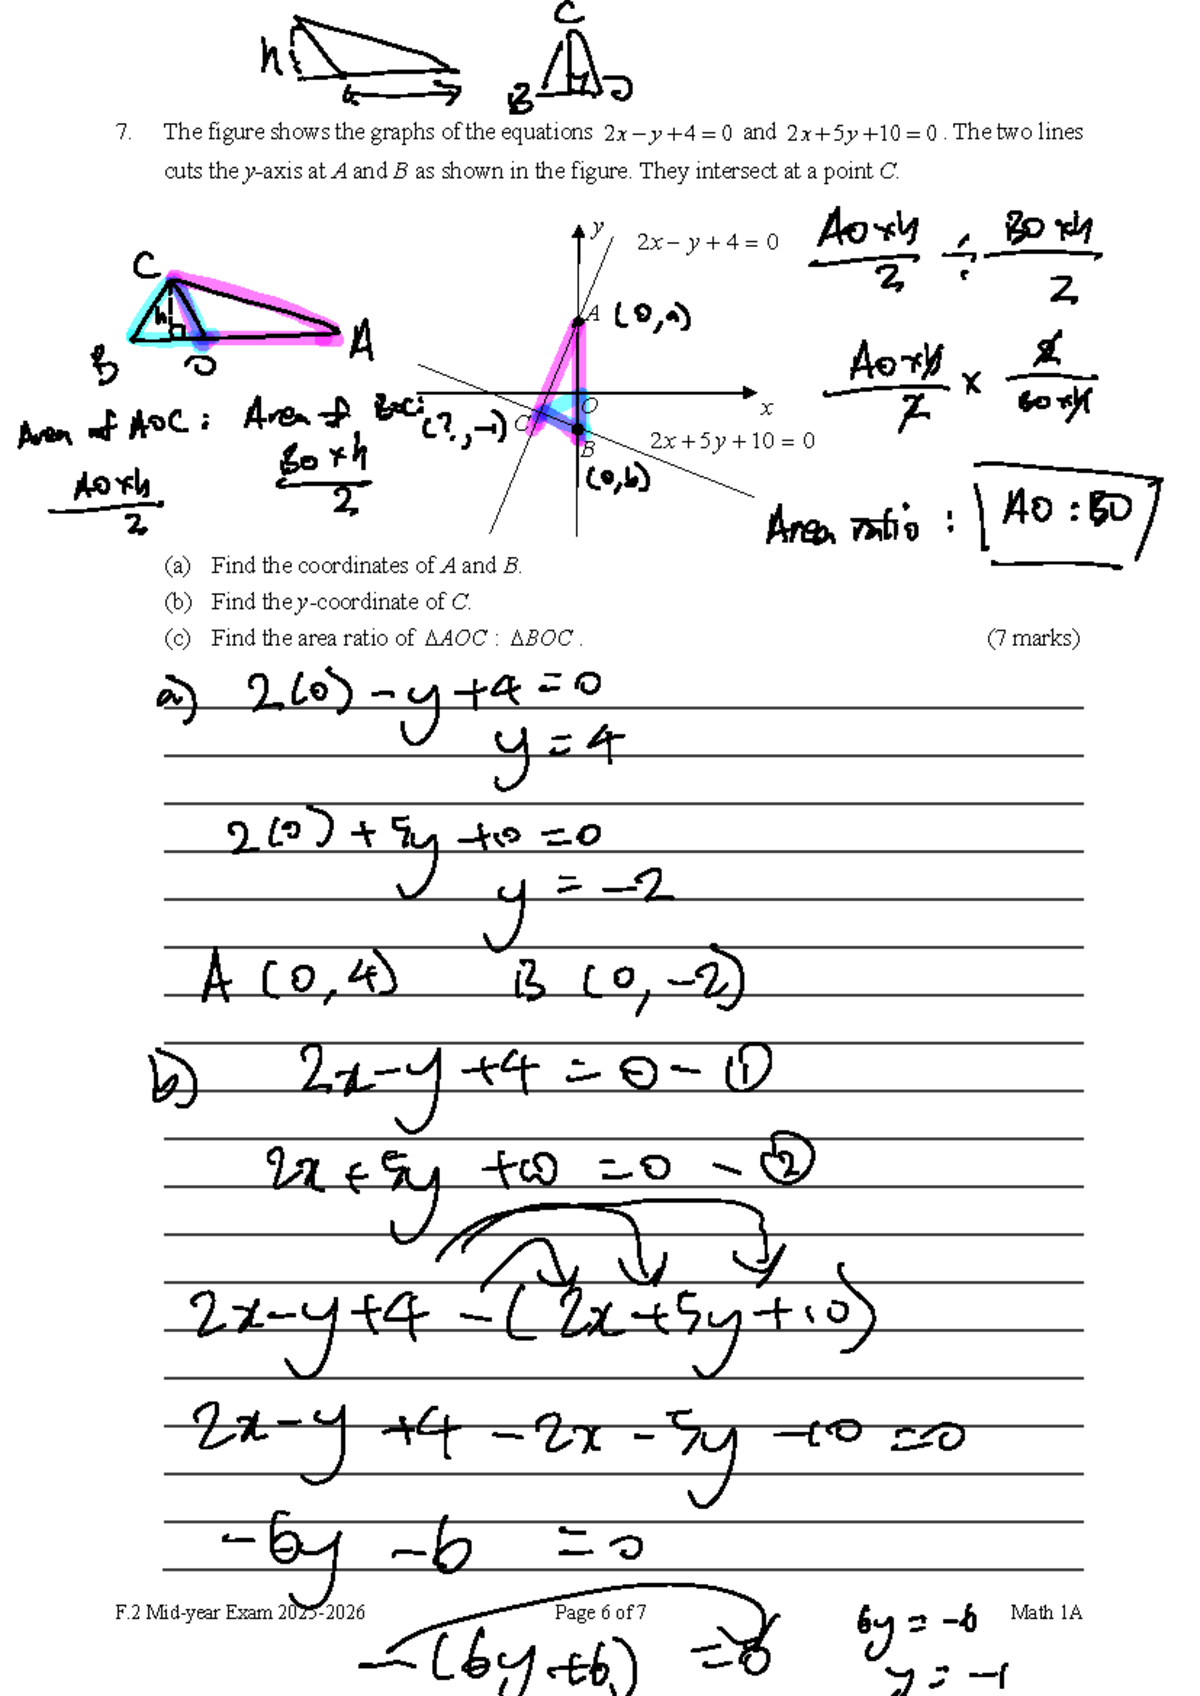 h
C
B O
7. The figure shows the graphs of the equations 2x − y + 4 = 0 and 2x + 5y + 10 = 0. The two lines
cuts the y-axis at A and B as shown in the figure. They intersect at a point C.
C
h
B O A
Area of AOC : Area of BOC:
AO×h/2 BO×h/2
y
2x − y + 4 = 0
A (0,a)
x
O
C (?,-1)
B
(0,b)
2x + 5y + 10 = 0
AO×h/2 ÷ BO×h/2
AO×h/2 × 2/BO×h
Area ratio : AO : BO
(a) Find the coordinates of A and B.
(b) Find the y-coordinate of C.
(c) Find the area ratio of ΔAOC : ΔBOC. (7 marks)
a) 2(0) - y + 4 = 0
y = 4
2(0) + 5y + 10 = 0
y = -2
A (0, 4) B (0, -2)
b) 2x - y + 4 = 0 - ①
2x + 5y + 10 = 0 - ②
2x - y + 4 - (2x + 5y + 10)
2x - y + 4 - 2x - 5y - 10 = 0
-6y - 6 = 0
F.2 Mid-year Exam 2025-2026 Page 6 of 7 Math 1A
-(6y + 6) = 0
6y = -6
y = -1